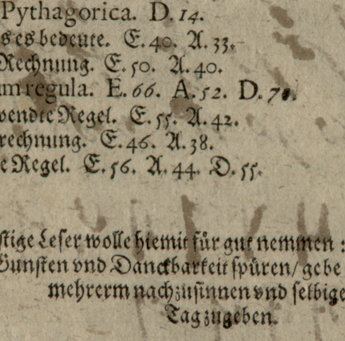 Pythagorica. D. 14.
s es bedeute. E. 40. A. 33.
Rechnung. E. 50. A. 40.
um regula. E. 66. A. 52. D. 71.
wendte Regel. E. 55. A. 42.
rechnung. E. 46. A. 38.
e Regel. E. 56. A. 44. D. 55.
stige Leser wolle hiemit für gut nemmen :
Gunsten vnd Danckbarkeit spüren/ gebe
mehrerm nachzusinnen vnd selbige
Tag zugeben.